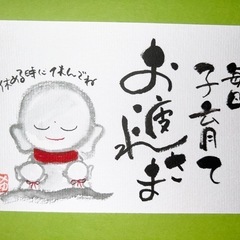 毎日
子育て
お疲れ
さま
休める時に休んでね